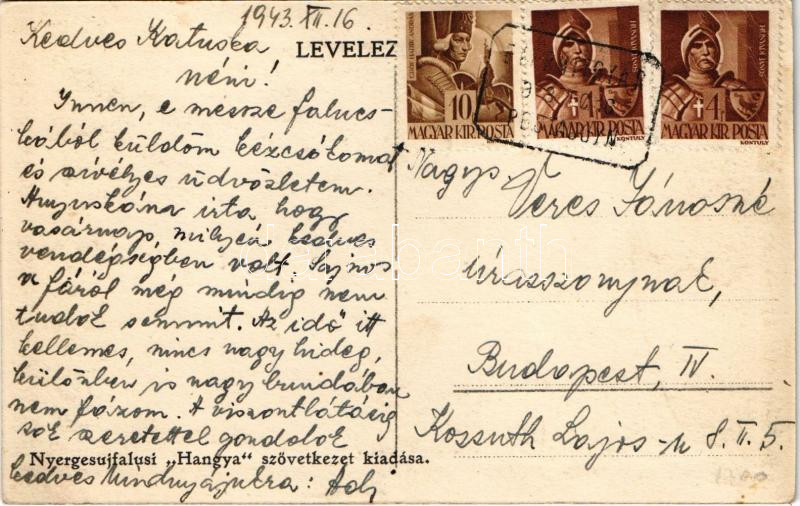 1943. XII. 16.
Kedves Katuska
néni!
LEVELEZ
Innen, e messze falucs-
kából küldöm kézcsókomat
és szívélyes üdvözletem.
Anyuskána irta hogy
vasárnap milyen kedves
vendégségben volt. Sajnos
a fáról még mindig nem
tudok semmit. Az idő itt
kellemes, nincs nagy hideg,
különben is nagy bundában
nem fázom. A viszontlátásig
sok szeretettel gondolok
Nyergesujfalusi „Hangya“ szövetkezet kiadása.
kedves
10
MAGYAR KIR. POSTA
MAGYAR KIR. POSTA
KONTULY
4
MAGYAR KIR. POSTA
KONTULY
Nagys.
Veres Jánosné
úrasszonynak,
Budapest, IV.
Kossuth Lajos-u 8. II. 5.
1200